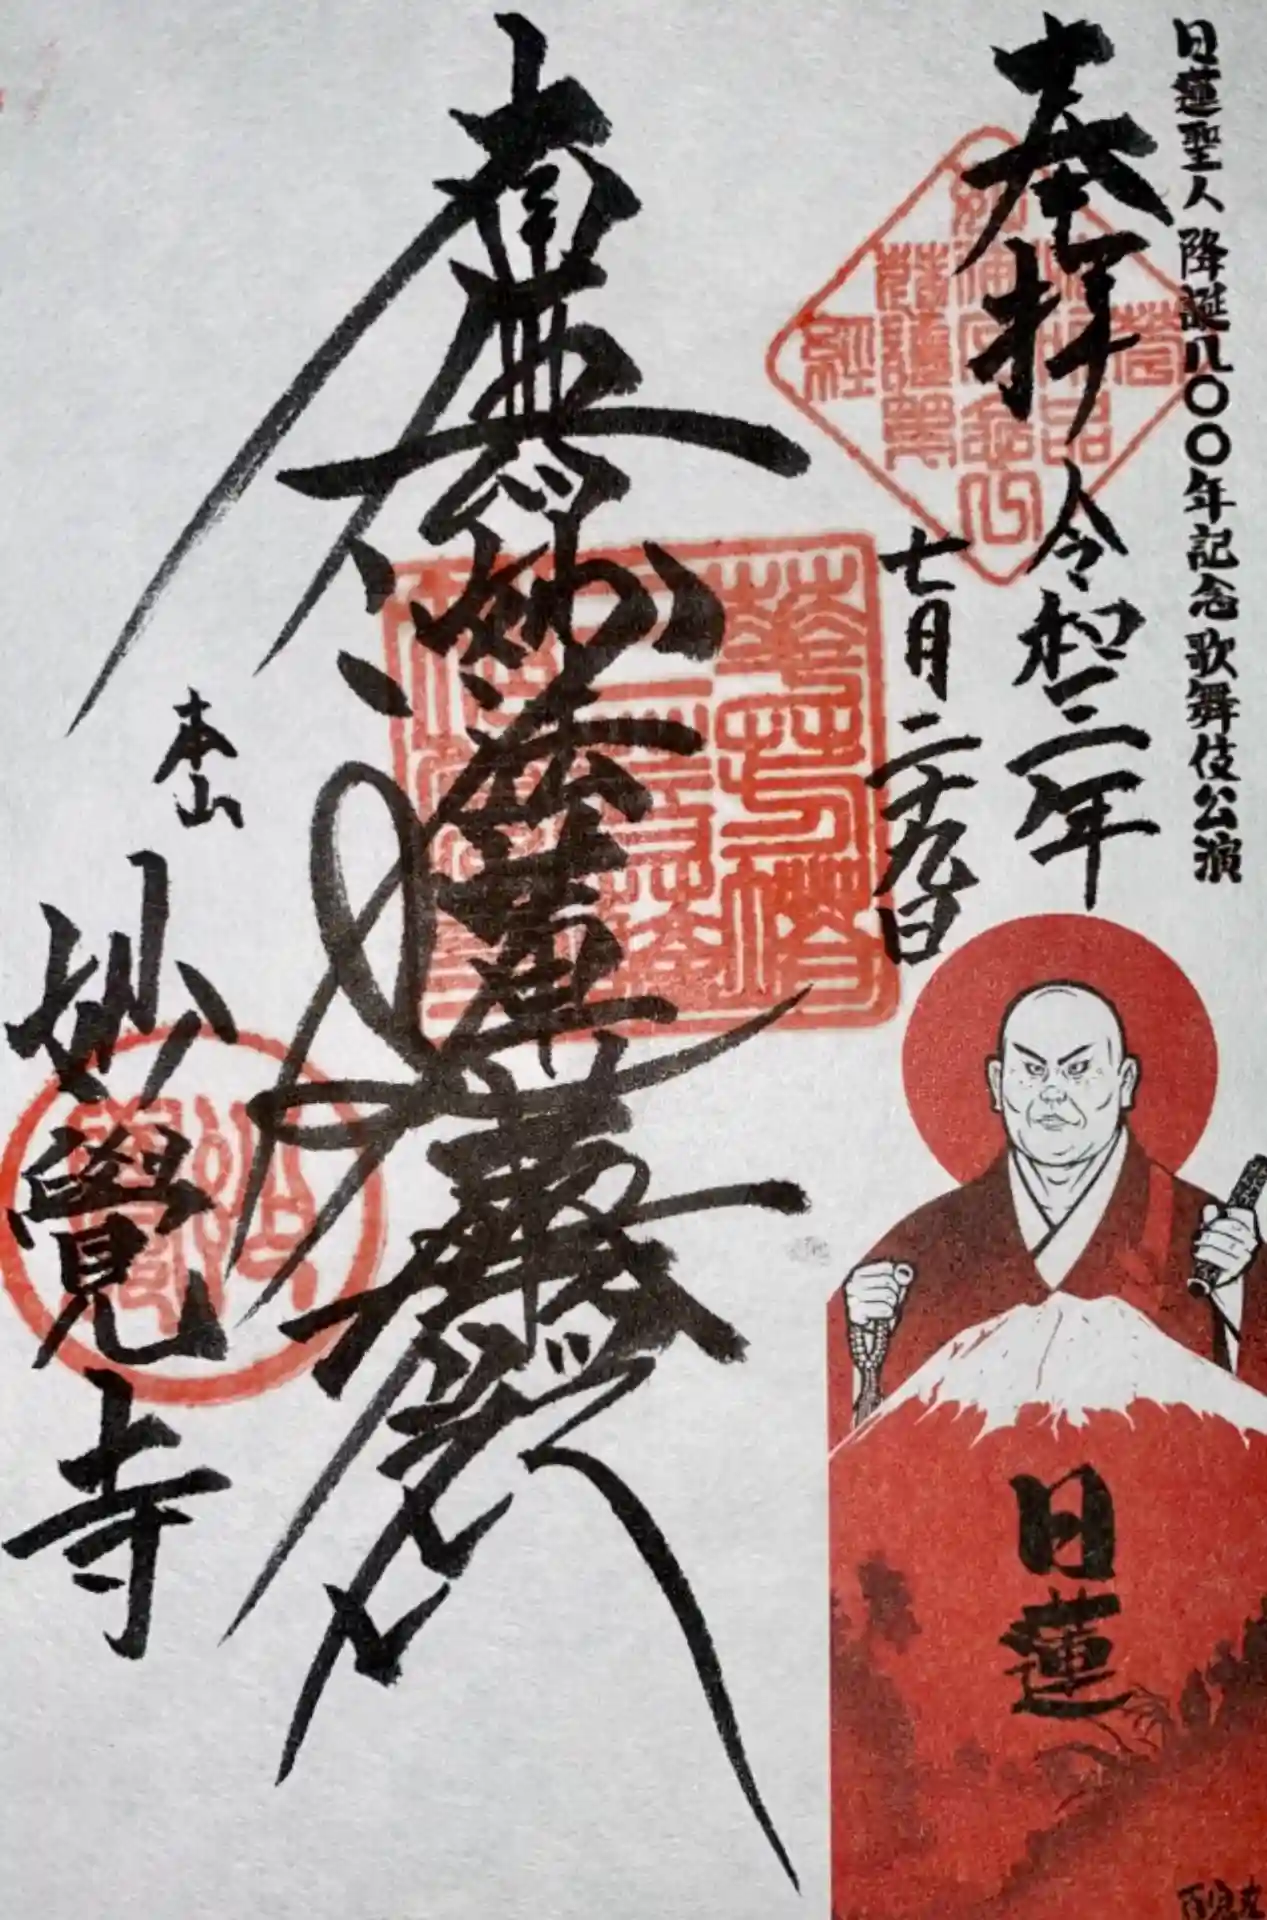 日蓮聖人降誕八〇〇年記念歌舞伎公演
奉拝
令和三年
七月二十九日
南無妙法蓮華経
本山
妙覺寺
日蓮